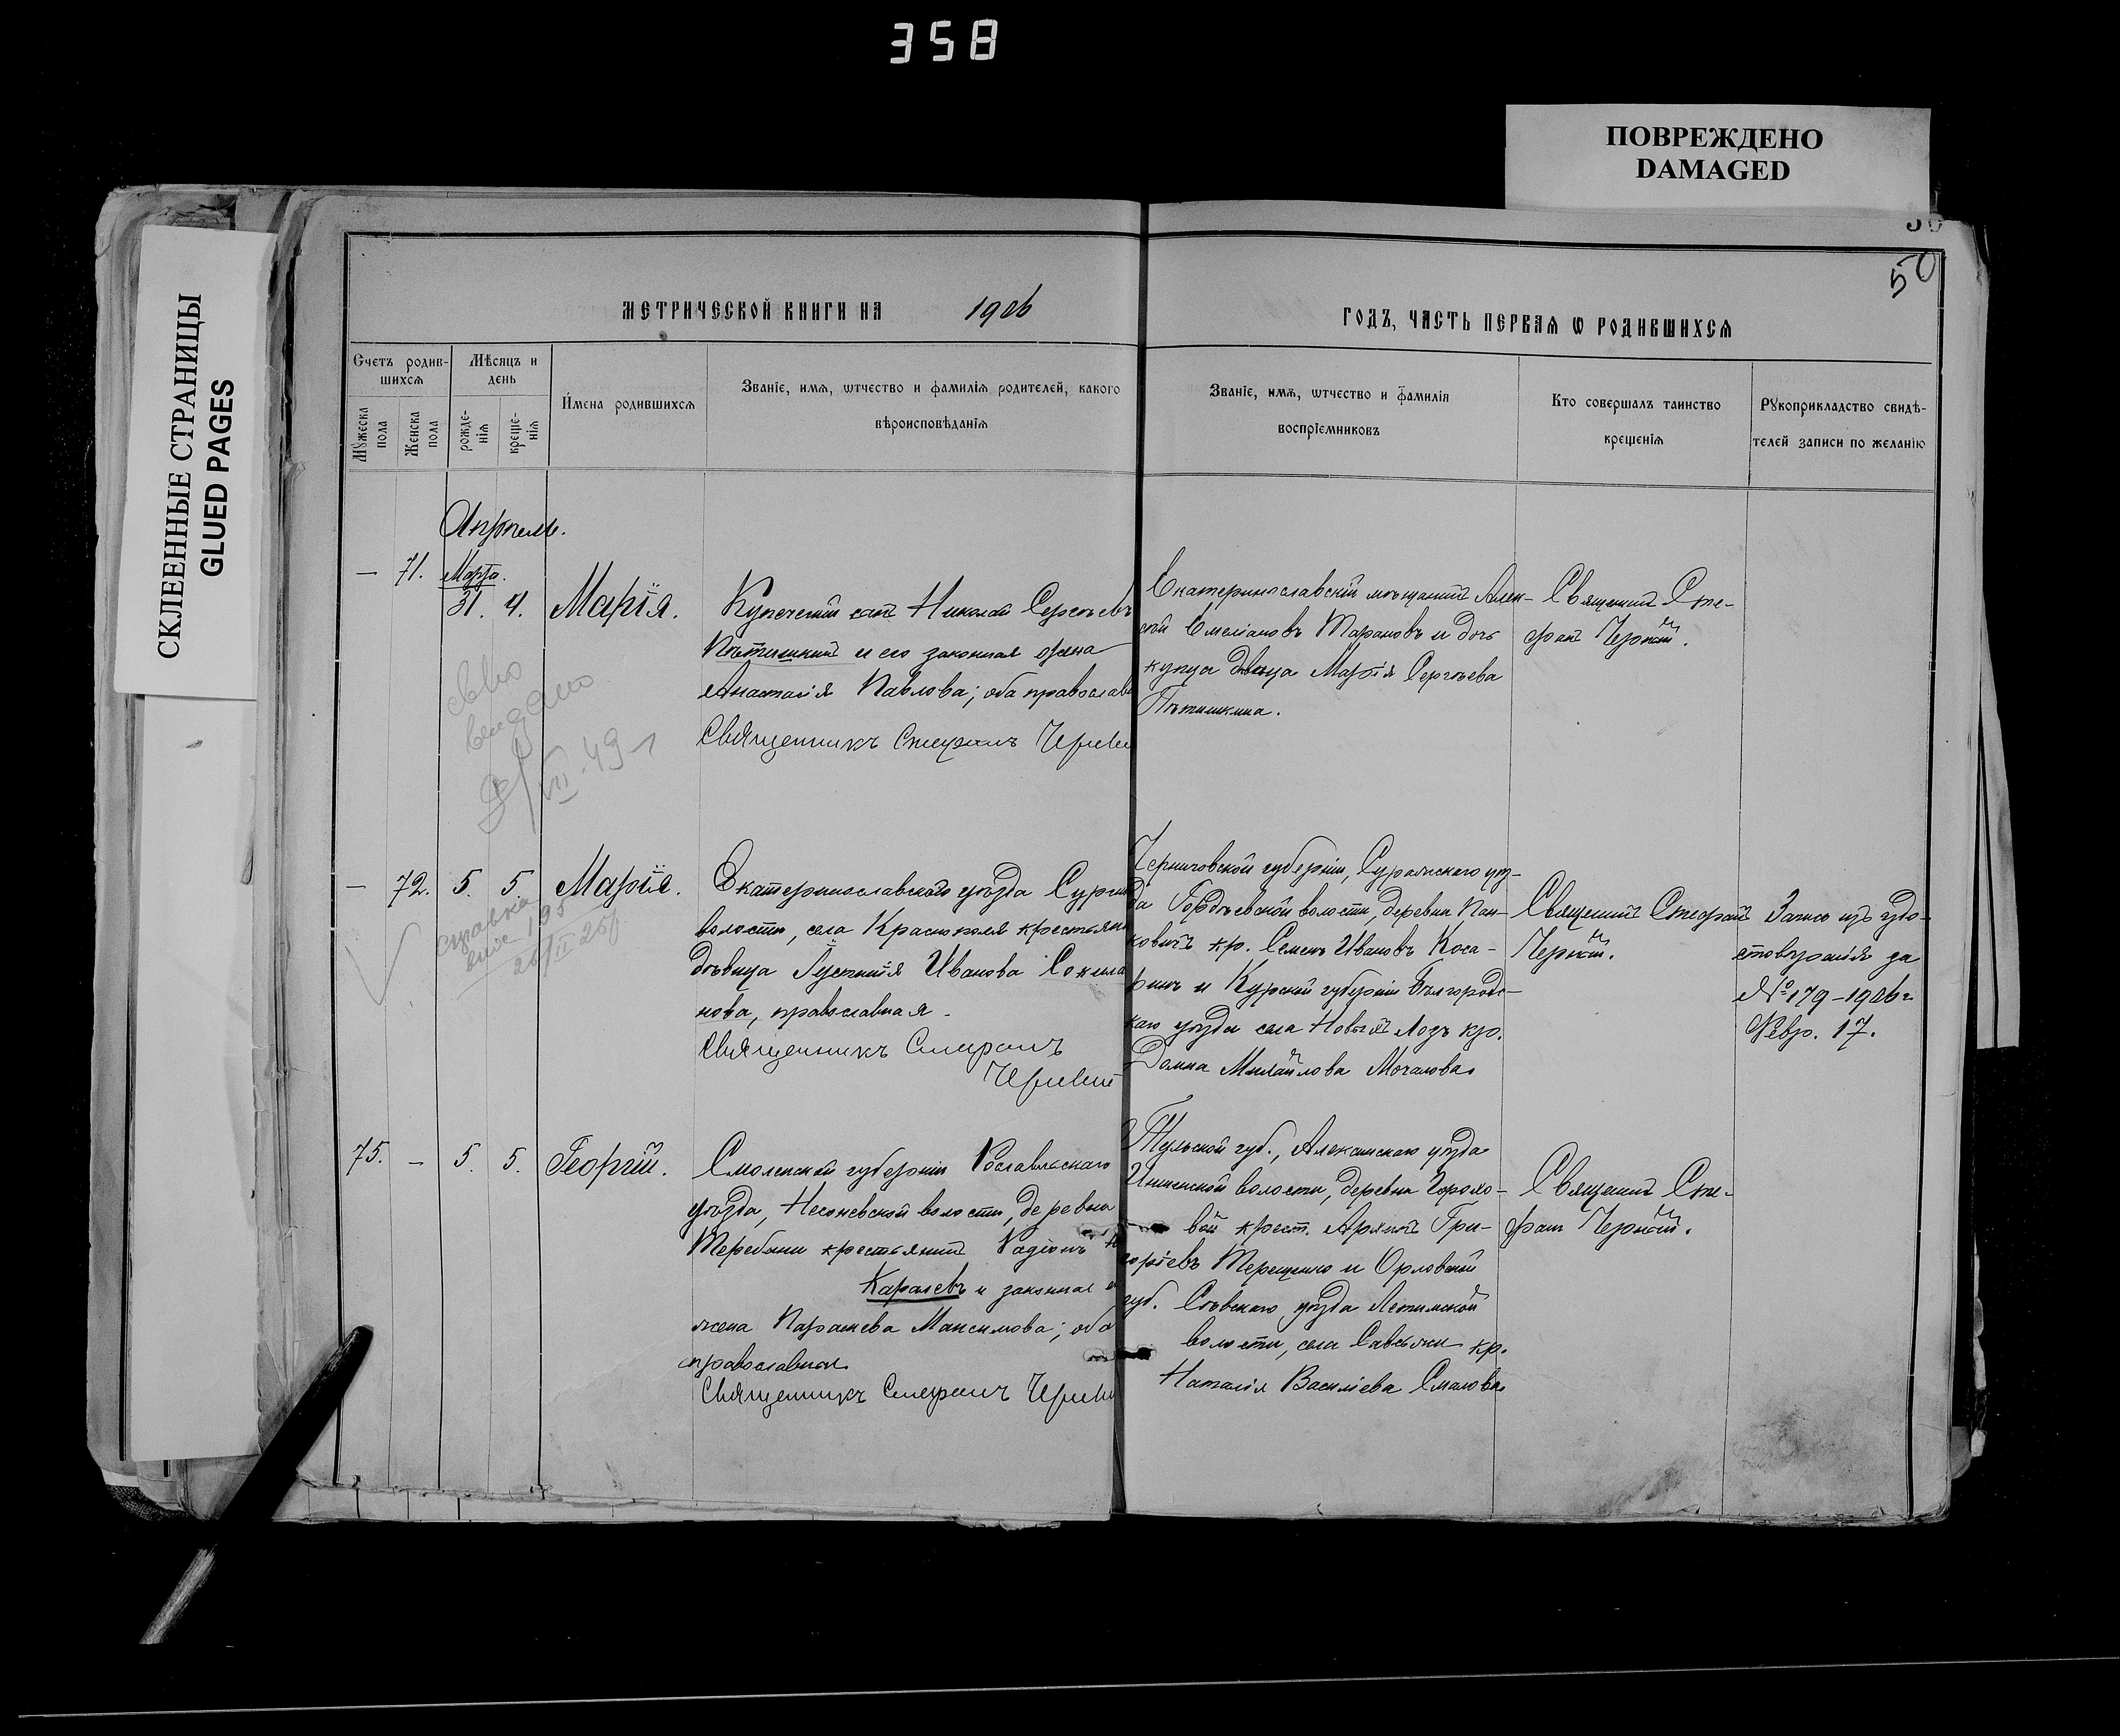 358
ПОВРЕЖДЕНО
DAMAGED
СКЛЕЕННЫЕ СТРАНИЦЫ
GLUED PAGES
50
МЕТРИЧЕСКОЙ КНИГИ НА 1906
ГОДЪ, ЧАСТЬ ПЕРВАЯ Ѡ РОДИВШИХСЯ
Счетъ родив-
шихся
Мѣсяцъ и
день
Мꙋжеска
пола
Женска
пола
рожде-
нїя
креще-
нїя
Имена родившихся
Званїе, имя, ѡтчество и фамилїя родителей, какого
вѣроисповѣданїя
Званїе, имя, ѡтчество и фамилїя
воспрїемниковъ
Кто совершалъ таинство
крещенїя
Рꙋкоприкладство свидѣ-
телей записи по желанїю
Апрѣль.
— 71. Марта.
31. 4. Марія.
Купеческій сынъ Николай Сергѣевъ
Пѣтишкинъ и его законная жена
Анастасія Павлова; оба православ
Священникъ Стефанъ
Екатеринославскій мѣщанинъ Алек-
сѣй Емеліановъ Тарановъ и дочь
купца дѣвица Марія Сергѣева
Пѣтишкина.
Священникъ Сте-
фанъ
выдано
VII-49
— 72. 5. 5. Марія.
справка
26/II 25
Екатеринославскаго уѣзда
волости, села Краснополя крестьян
дѣвица Іустинія Иванова
нова, православная.
Священникъ Стефанъ
Черниговской губерніи, Суражскаго уѣз-
да Гордѣевской волости, деревни
кр. Семенъ Ивановъ Коса-
и Курской губерніи Бѣлгородс-
каго уѣзда села кр.
Домна Михайлова Мочалова
Священникъ Стефанъ
Запись изъ удо-
стовѣренія за
№ 179-1906 г.
Февр. 17.
75. — 5. 5. Георгій.
Смоленской губерніи Рославльскаго
уѣзда, волости, деревни
крестьянинъ Радіонъ
Каралевъ и законная е
жена Параскева Максимова; оба
православные
Священникъ Стефанъ
Тульской губ., Алексинскаго уѣзда
волости, деревни
вой крест. Гри-
горіевъ Терещенко и Орловской
губ. Сѣвскаго уѣзда
волости, села кр.
Наталія Василіева
Священникъ Сте-
фанъ